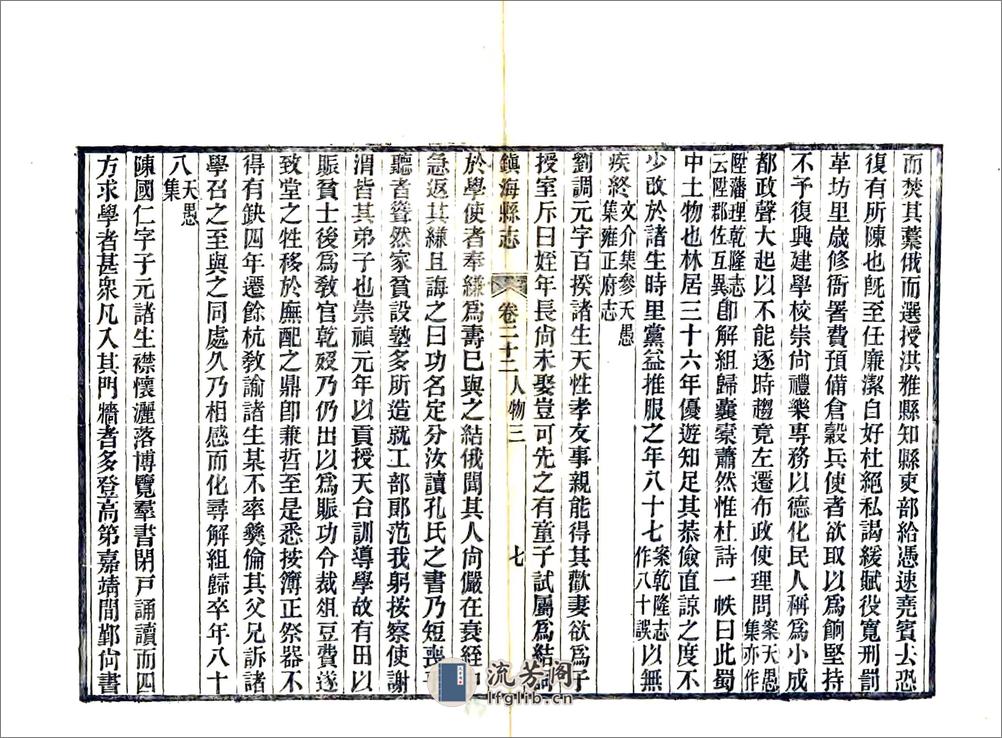 而焚其藳俄而選授洪雅縣知縣吏部給憑速堯賓去恐
復有所陳也旣至任廉潔自好杜絕私謁緩賦役寬刑罰
革坊里歲修衙署費預備倉穀兵使者欲取以爲餉堅持
不予復興建學校崇尙禮樂專務以德化民人稱爲小成
都政聲大起以不能逐時趨竟左遷布政使理問案天愚集亦作
陞藩理乾隆志云陞郡佐互異卽解組歸囊橐蕭然惟杜詩一帙曰此蜀
中土物也林居三十六年優遊知足其恭儉直諒之度不
少改於諸生時里黨益推服之年八十七案乾隆志作八十誤以無
疾終文介集參天愚集雍正府志
劉調元字百揆諸生天性孝友事親能得其歡妻欲爲子
授室斥曰姪年長尙未娶豈可先之有童子試屬爲結
鎭海縣志 卷二十二 人物三 七
於學使者奉縑爲壽巳與之結俄聞其人尙儼在衰絰
急返其縑且誨之曰功名定分汝讀孔氏之書乃短喪
聽者聳然家貧設塾多所造就工部郞范我躬按察使謝
渭皆其弟子也崇禎元年以貢授天台訓導學故有田以
賑貧士後爲敎官乾歿乃仍出以爲賑功令裁俎豆費遂
致堂之牲移於廡配之鼎卽兼哲至是悉按簿正祭器不
得有缺四年遷餘杭敎諭諸生某不率彝倫其父兄訴諸
學召之至與之同處久乃相感而化尋解組歸卒年八十
八天愚集
陳國仁字子元諸生襟懷灑落博覽羣書閉戶誦讀而四
方求學者甚衆凡入其門牆者多登高第嘉靖間鄞尙書
流芳阁
lfglib.cn